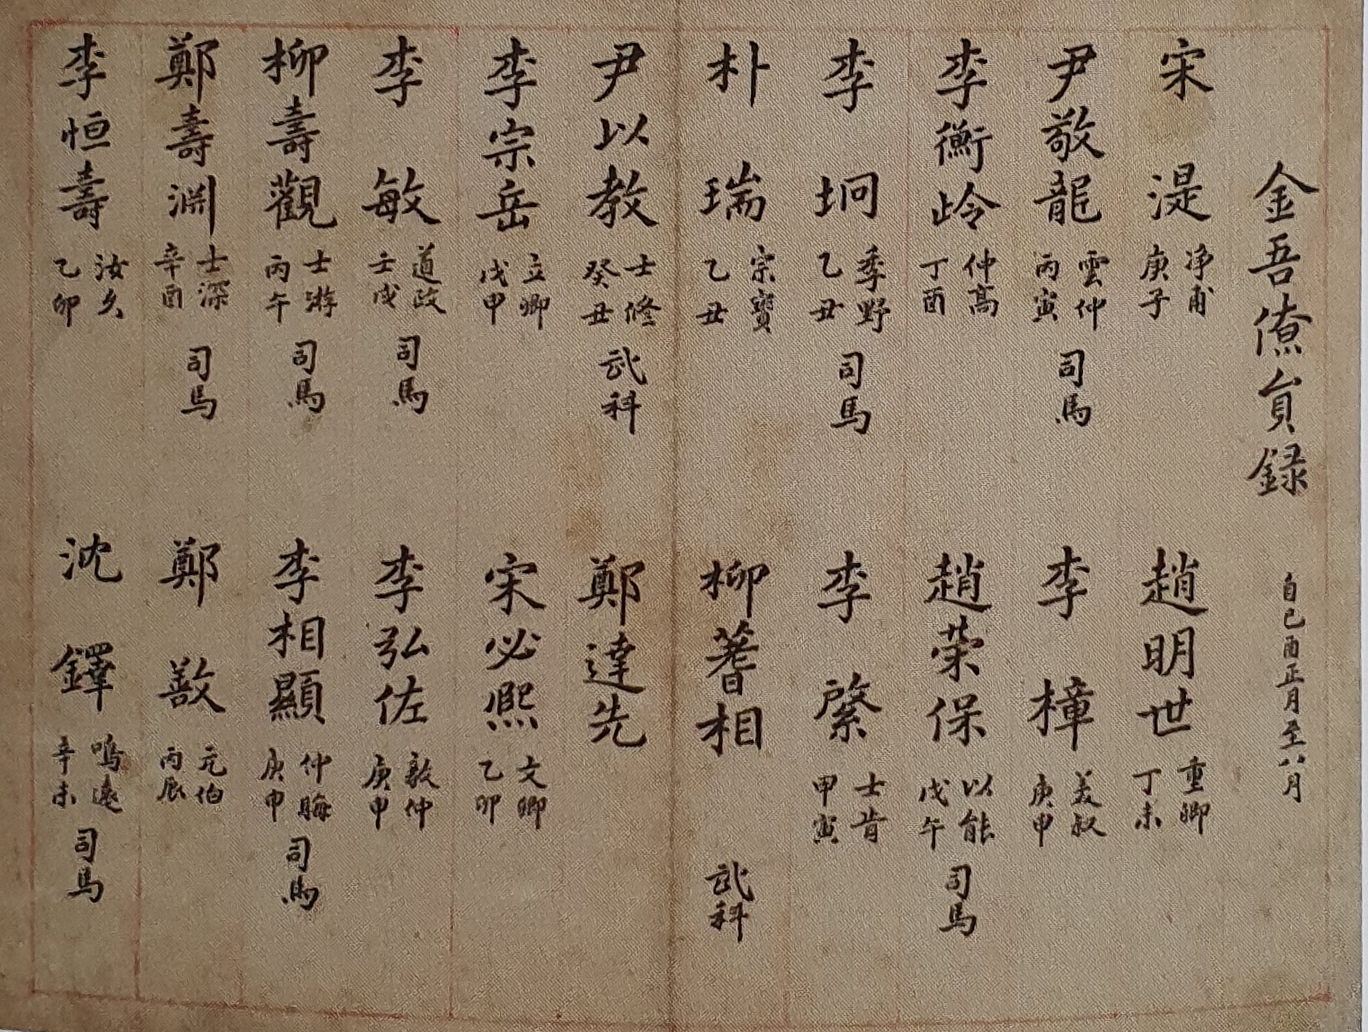 金吾僚員錄 自己酉正月至八月
宋湜 淨甫 庚子
尹敬龍 雲仲 丙寅 司馬
李衡岭 仲高 丁酉
李坰 季野 乙丑 司馬
朴瑞 宗寶 乙丑
尹以教 士修 癸丑 武科
李宗岳 立卿 戊申
李敏 道政 壬戌 司馬
柳壽觀 士游 丙午 司馬
鄭壽渊 士深 辛酉 司馬
李恒壽 汝久 乙卯
趙明世 重卿 丁未
李樟 美叔 庚申
趙荣保 以能 戊午 司馬
李綮 士肯 甲寅
柳蓍相 武科
鄭達先
宋必熙 文卿 乙卯
李弘佐 敦仲 庚申
李相顯 仲晦 庚申 司馬
鄭敾 元伯 丙辰
沈鐸 鳴遠 辛未 司馬